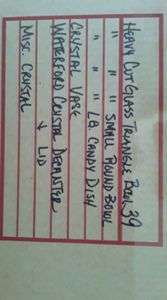 HEAVY CUT GLASS TRIANGLE BOWL 39
" " " SMALL ROUND BOWL
" " " LB. CANDY DISH
CRYSTAL VASE
WATERFORD CRYSTAL DECANTER
+ LID
MISC. CRYSTAL